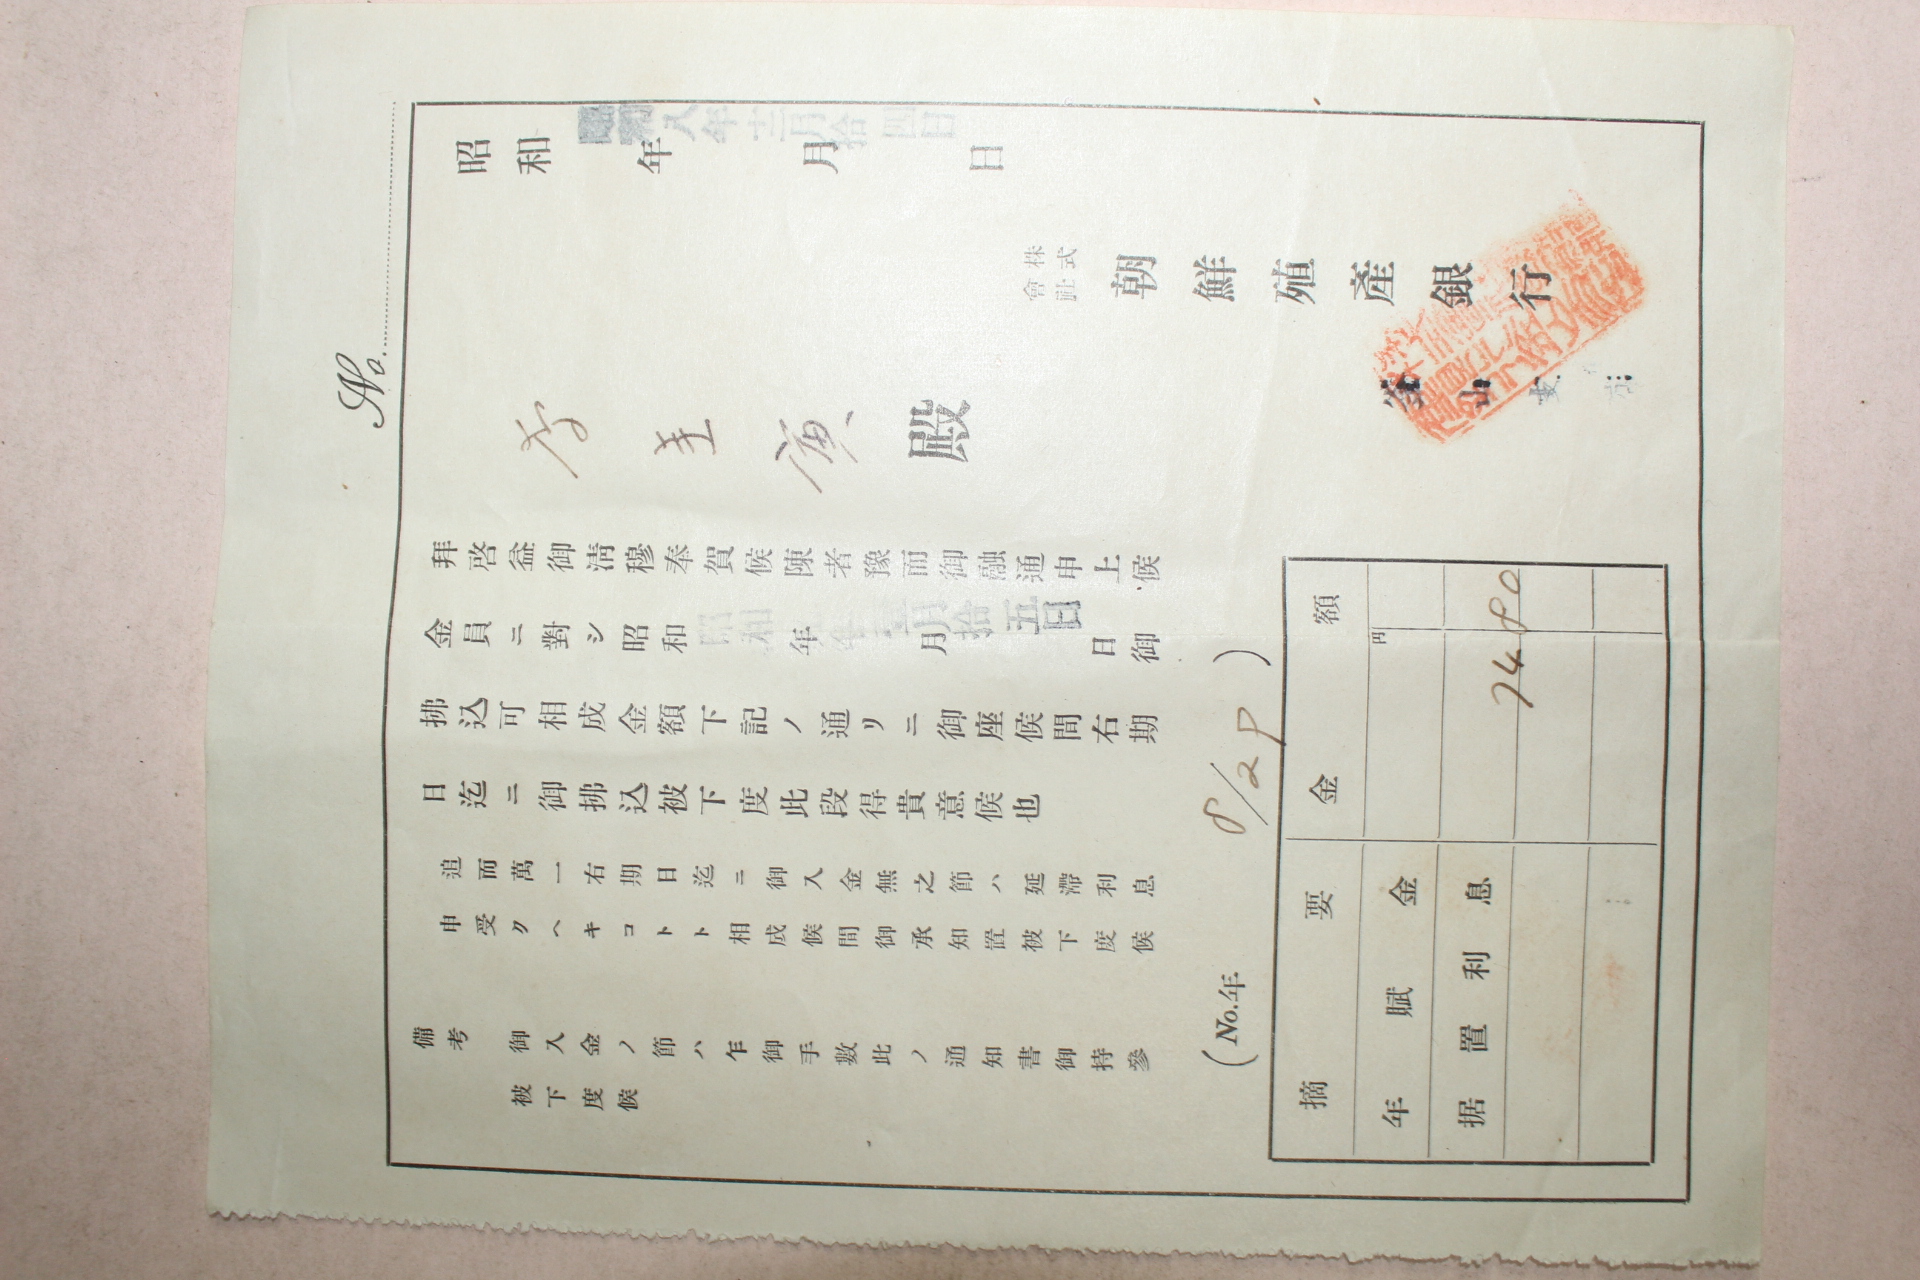 No.
昭和 年 月 日
昭和八年十二月拾四日
株式會社 朝鮮殖產銀行
釜山支店
殿
拜啓益御清穆奉賀候陳者豫而御融通申上候
金員ニ對シ昭和 年 月 日御
拾五日
拂込可相成金額下記ノ通リニ御座候間右期
日迄ニ御拂込被下度此段得貴意候也
追而萬一右期日迄ニ御入金無之節ハ延滯利息
申受クヘキコトト相成候間御承知置被下度候
備考
御入金ノ節ハ乍御手數此ノ通知書御持參
被下度候
(No.年 8/29)
摘要 金額
年賦金 円
据置利息 74 80